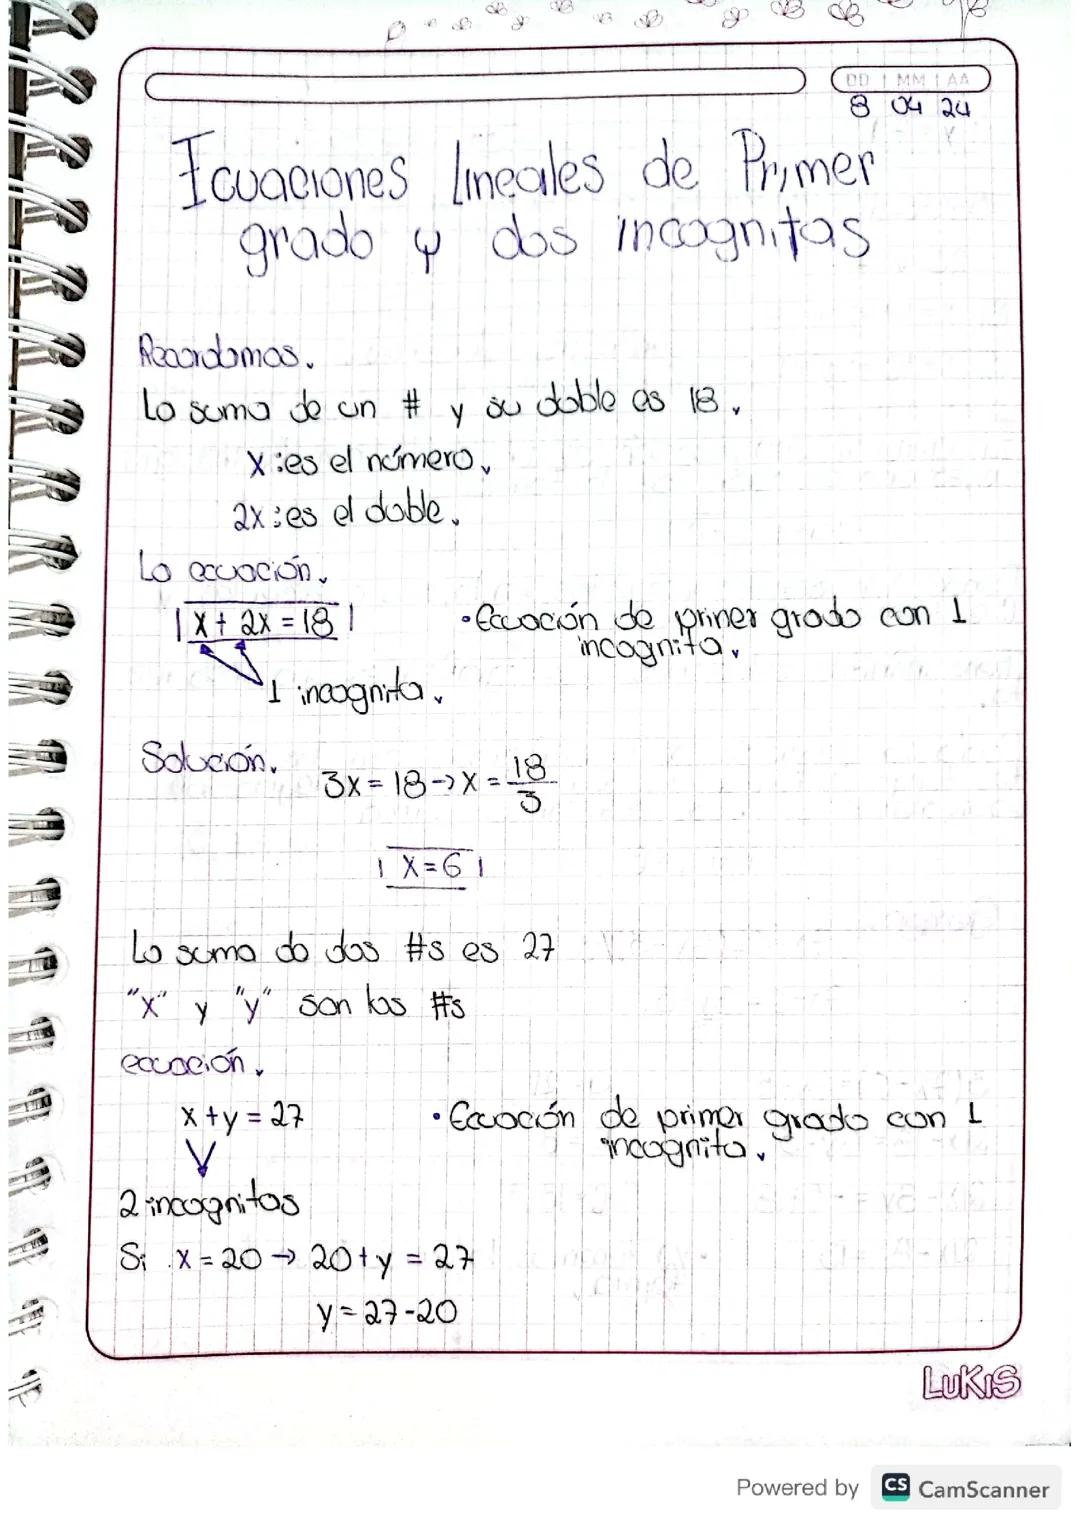 DD | MM | AA
8 04 24
Ecuaciones lineales de Primer
grado y dos incognitas
Recordamos.
La suma de un # y su doble es 18.
x : es el número.
2x : es el doble.
La ecuación.
x + 2x = 18
• Ecuación de primer grado con 1
incognita.
1 incognita.
Solución.
3x = 18 → x = 18/3
x = 6
La suma de dos #s es 27
"x" y "y" son los #s
ecuación.
x + y = 27
• Ecuación de primer grado con 1
incognita.
2 incognitas
Si x = 20 → 20 + y = 27
y = 27 - 20
LUKIS
Powered by CS CamScanner